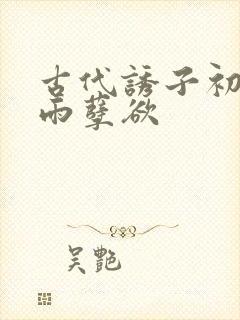 古代誘子初
雨孽欲
吴艷